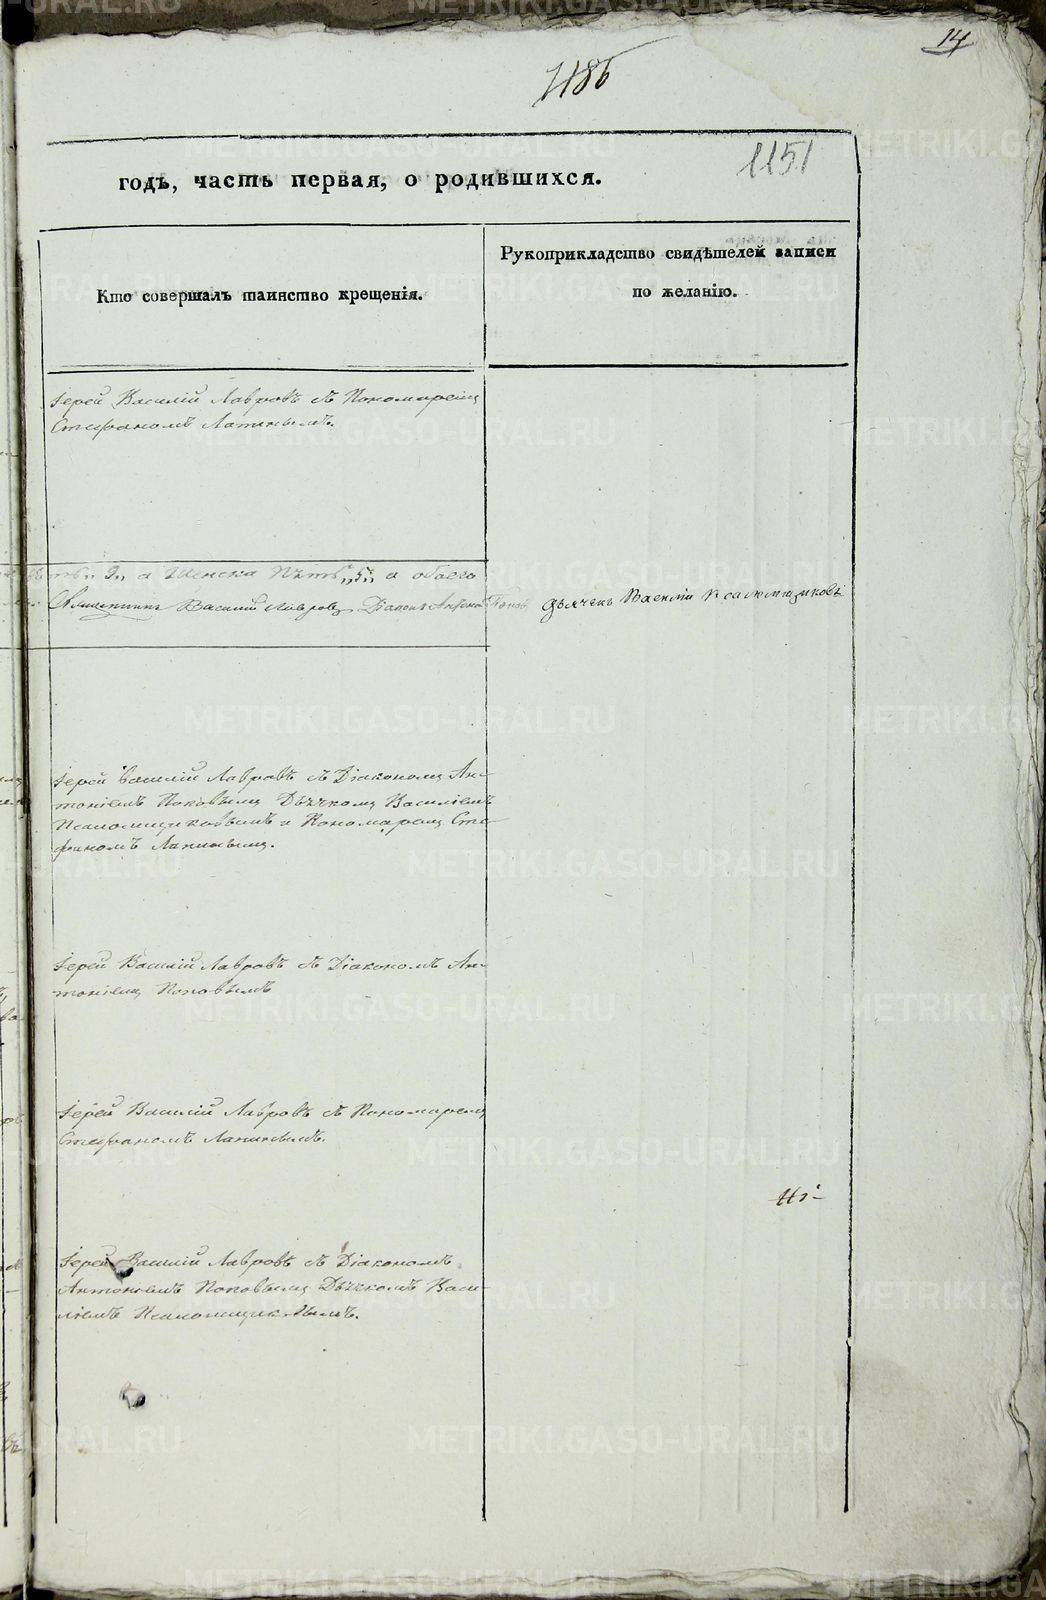 14
1186
1151
годъ, часть первая, о родившихся.
Кто совершалъ таинство крещенія.
Рукоприкладство свидѣтелей записи
по желанію.
Іерей Василій Лавровъ съ Пономаремъ
Стефаномъ Лапинымъ.
9,, а Женска Пять ,,5,, а обоего
Священникъ Василій Лавровъ Діаконъ Антоній Поповъ Дьячекъ Василій Псаломщиковъ
Іерей Василій Лавровъ съ Діакономъ Ан-
тоніемъ Поповымъ Дьячкомъ Василіемъ
Псаломщиковымъ и Пономаремъ Сте-
фаномъ Лапинымъ.
Іерей Василій Лавровъ съ Діакономъ Ан-
тоніемъ Поповымъ
Іерей Василій Лавровъ съ Пономаремъ
Стефаномъ Лапинымъ.
Іерей Василій Лавровъ съ Діакономъ
Антоніемъ Поповымъ Дьячкомъ Васи-
ліемъ Псаломщиковымъ.
METRIKI.GASO-URAL.RU